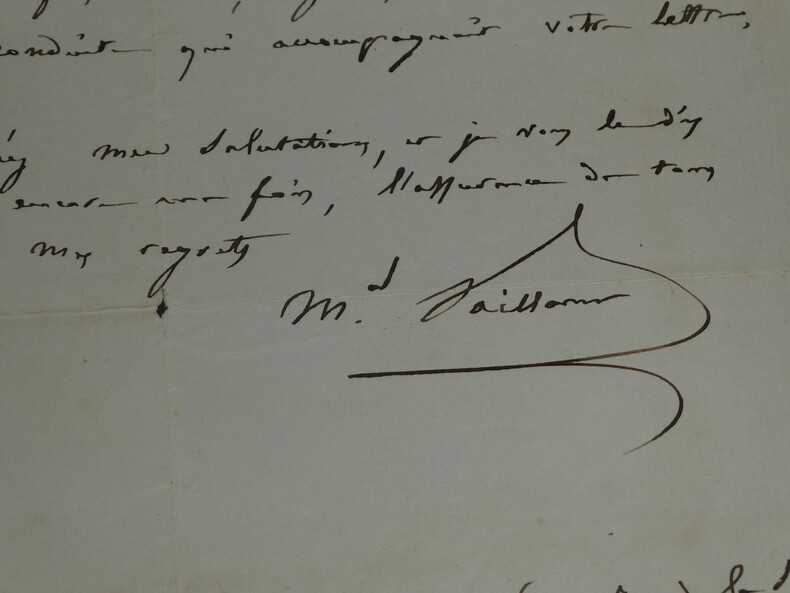 qui accompagnait votre lettre,
mes salutations, et je vous le dis
encore une fois, l'assurance de tous
mes regrets
M.al Vaillant